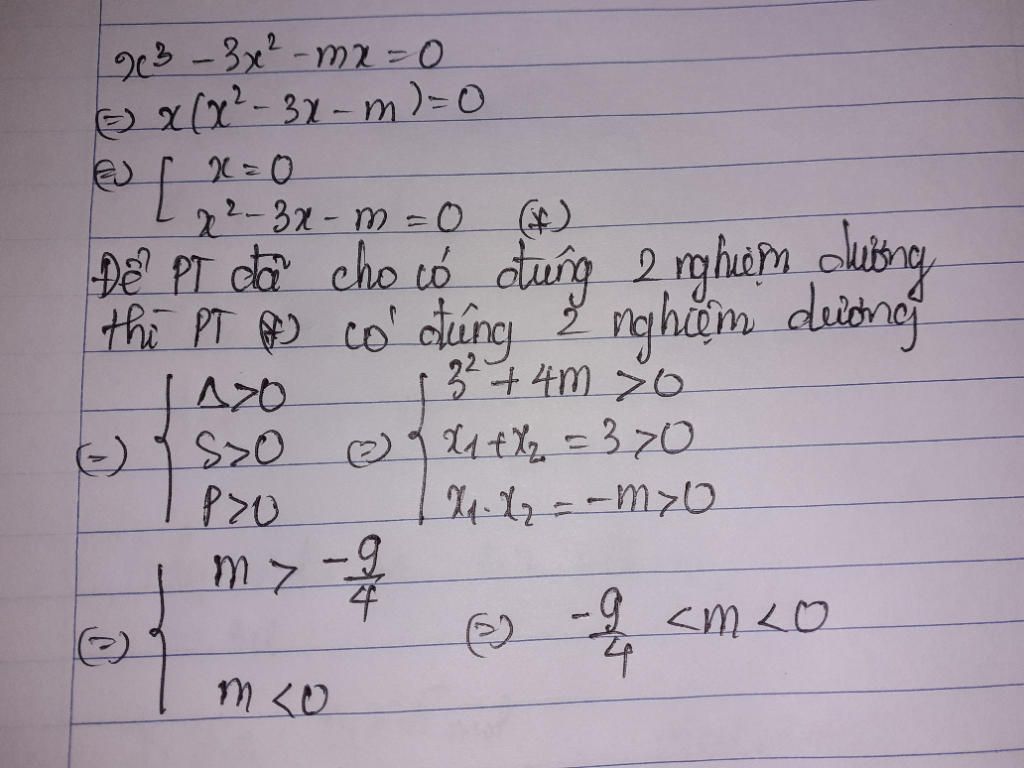 x³ - 3x² - mx = 0
(=) x(x² - 3x - m) = 0
(=) [ x = 0
x² - 3x - m = 0 (*)
Để PT đã cho có đúng 2 nghiệm dương
thì PT (*) có đúng 2 nghiệm dương
(=) { Δ>0 S>0 P>0 (=) { 3² + 4m > 0 x₁ + x₂ = 3 > 0 x₁.x₂ = -m > 0
(=) { m > -9/4 m < 0 (=) -9/4 < m < 0